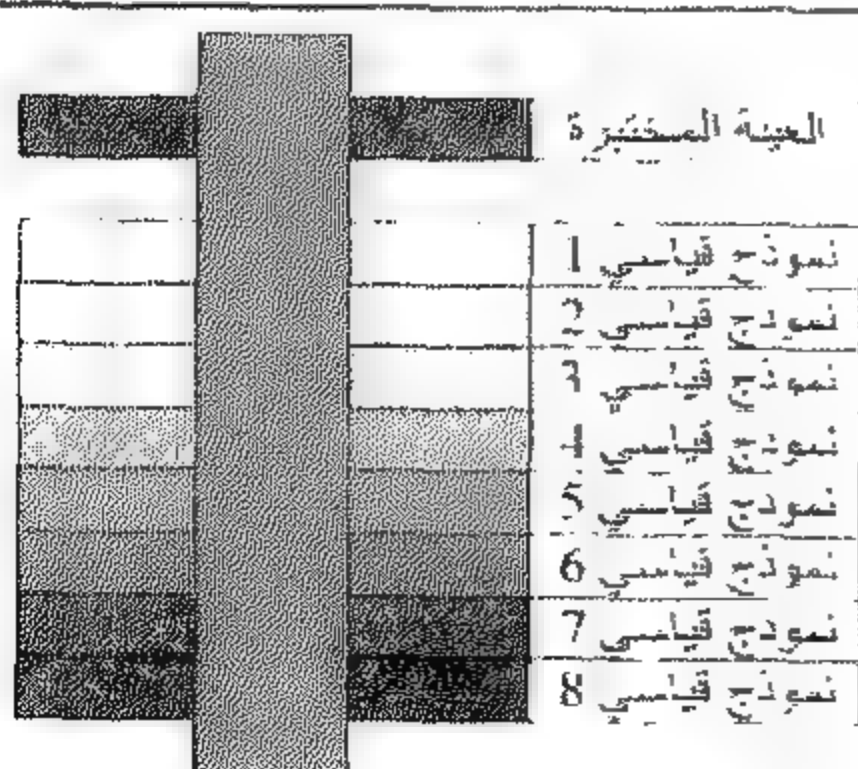 العينة المختبرة
نموذج قياسي 1
نموذج قياسي 2
نموذج قياسي 3
نموذج قياسي 4
نموذج قياسي 5
نموذج قياسي 6
نموذج قياسي 7
نموذج قياسي 8